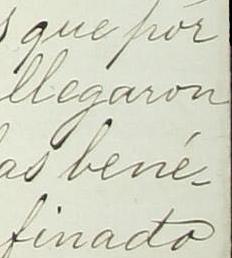 s que pór
llegaron
las bené-
finado